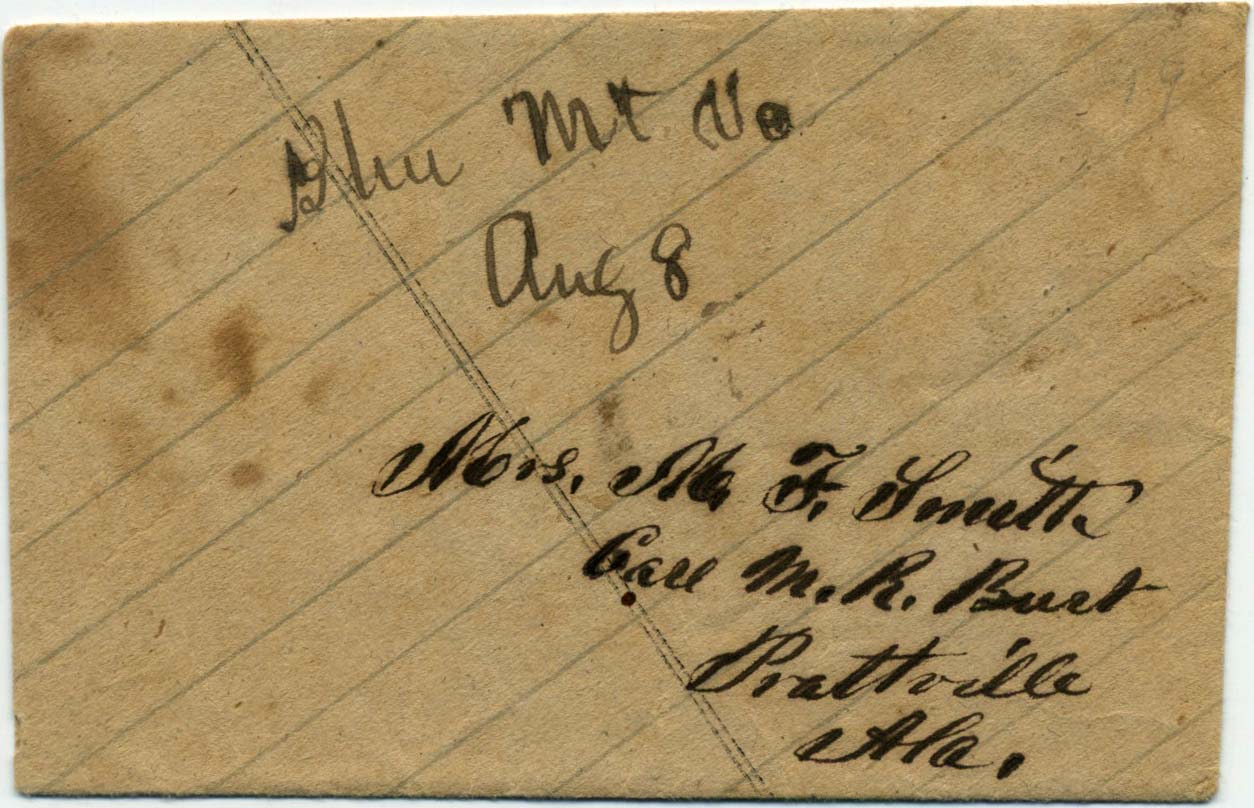 Mt Va
Aug 8
Mrs. M. F. Smith
Care M. R. Burt
Prattville
Ala.